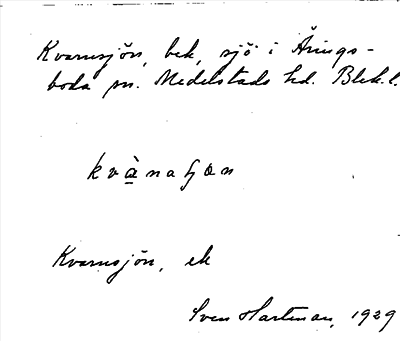 Kvarnsjön, bek, sjö i Årings-
boda sn. Medelstads hd. Blek.l.
kvànaʃɶn
Kvarnsjön, ek
Sven Hartman, 1929